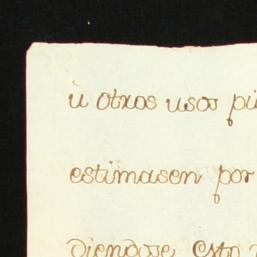 ù otros usos pú
estimasen por
diendose, esto